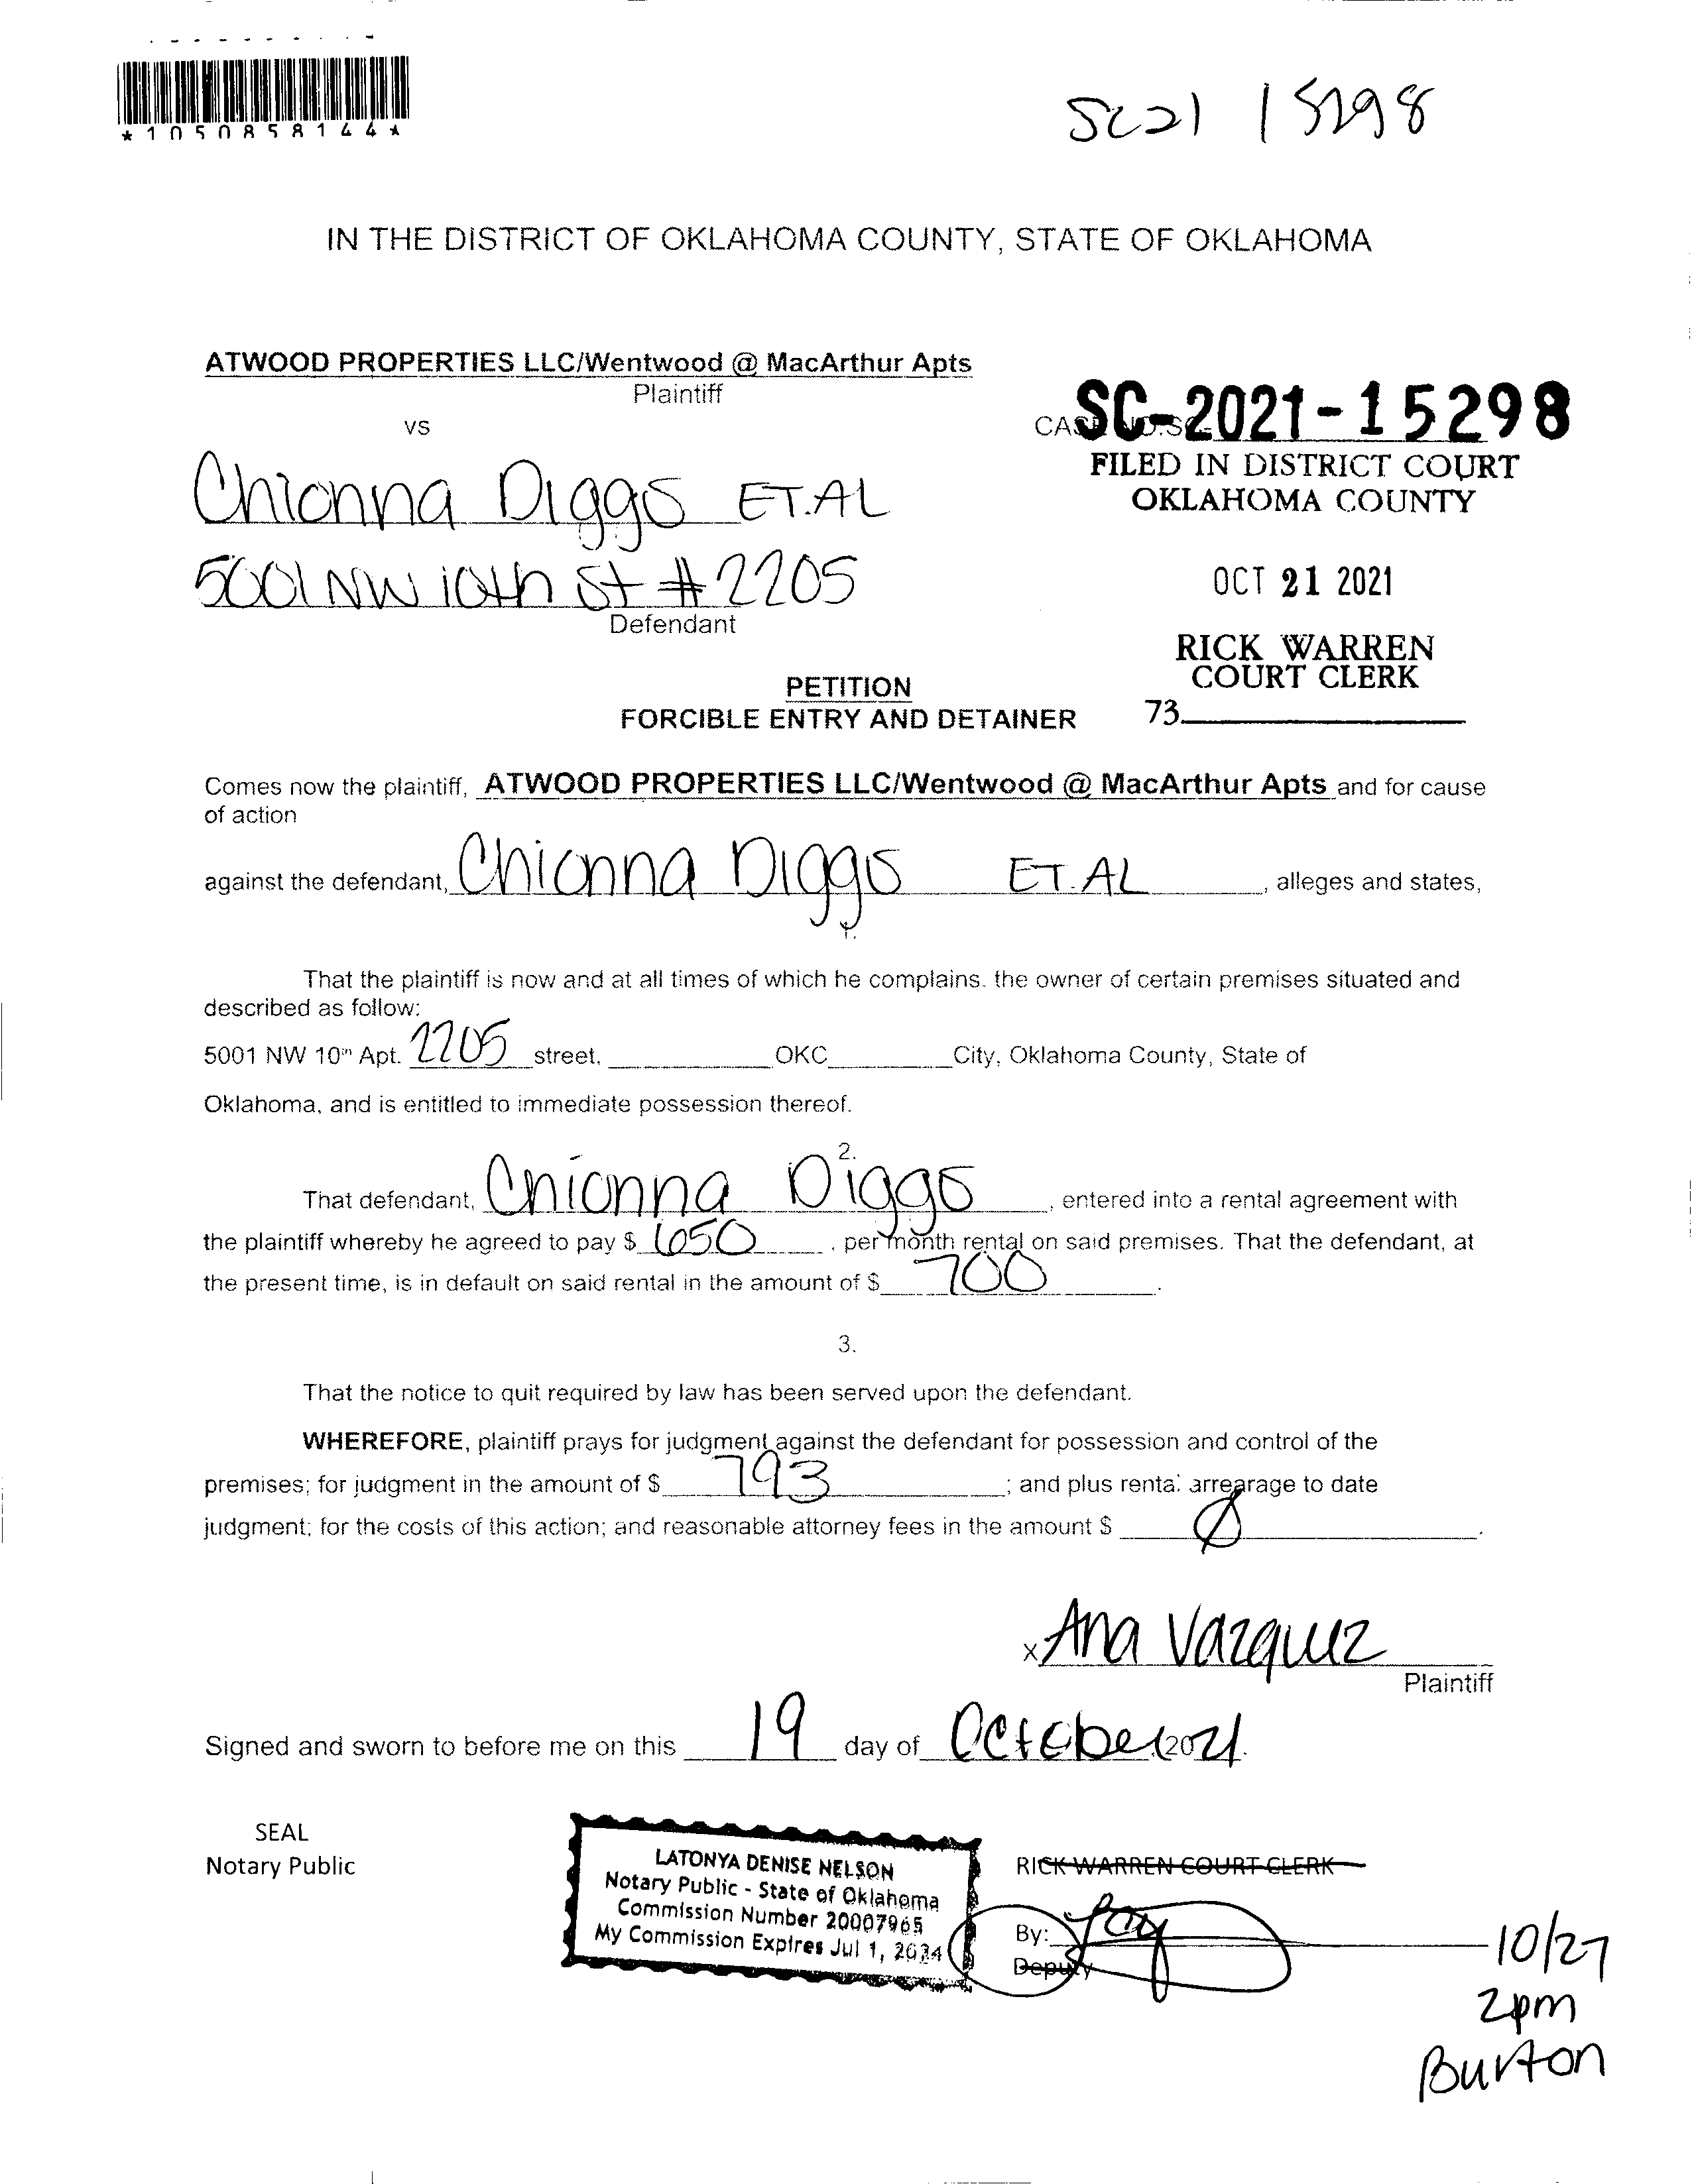 *1050858144*
SC21 15298
IN THE DISTRICT OF OKLAHOMA COUNTY, STATE OF OKLAHOMA
ATWOOD PROPERTIES LLC/Wentwood @ MacArthur Apts
Plaintiff
vs
CASE NO.SC-
SC-2021-15298
FILED IN DISTRICT COURT
OKLAHOMA COUNTY
Chionna Diggs ET.AL
5001 NW 10th St #2205
Defendant
OCT 21 2021
RICK WARREN
COURT CLERK
73
PETITION
FORCIBLE ENTRY AND DETAINER
Comes now the plaintiff, ATWOOD PROPERTIES LLC/Wentwood @ MacArthur Apts and for cause
of action
against the defendant, Chionna Diggs ET.AL , alleges and states,
1.
That the plaintiff is now and at all times of which he complains. the owner of certain premises situated and
described as follow:
5001 NW 10th Apt. 2205 street, OKC City, Oklahoma County, State of
Oklahoma, and is entitled to immediate possession thereof.
2.
That defendant, Chionna Diggs , entered into a rental agreement with
the plaintiff whereby he agreed to pay $ 650 , per month rental on said premises. That the defendant, at
the present time, is in default on said rental in the amount of $ 700 .
3.
That the notice to quit required by law has been served upon the defendant.
WHEREFORE, plaintiff prays for judgment against the defendant for possession and control of the
premises; for judgment in the amount of $ 793 ; and plus rental arrearage to date
judgment; for the costs of this action; and reasonable attorney fees in the amount $ Ø .
x Ana Vazquez
Plaintiff
Signed and sworn to before me on this 19 day of October, 2021.
SEAL
Notary Public
LATONYA DENISE NELSON
Notary Public - State of Oklahoma
Commission Number 20007965
My Commission Expires Jul 1, 2024
RICK WARREN COURT CLERK
By:
Deputy
10/27
2pm
Burton